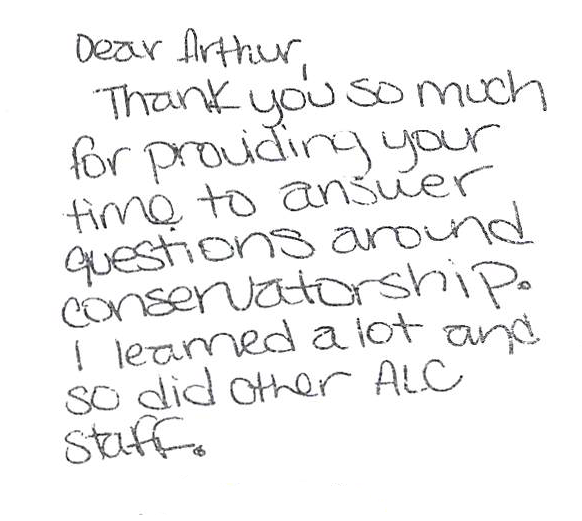 Dear Arthur,
Thank you so much
for providing your
time to answer
questions around
conservatorship.
I learned a lot and
so did other ALC
staff.